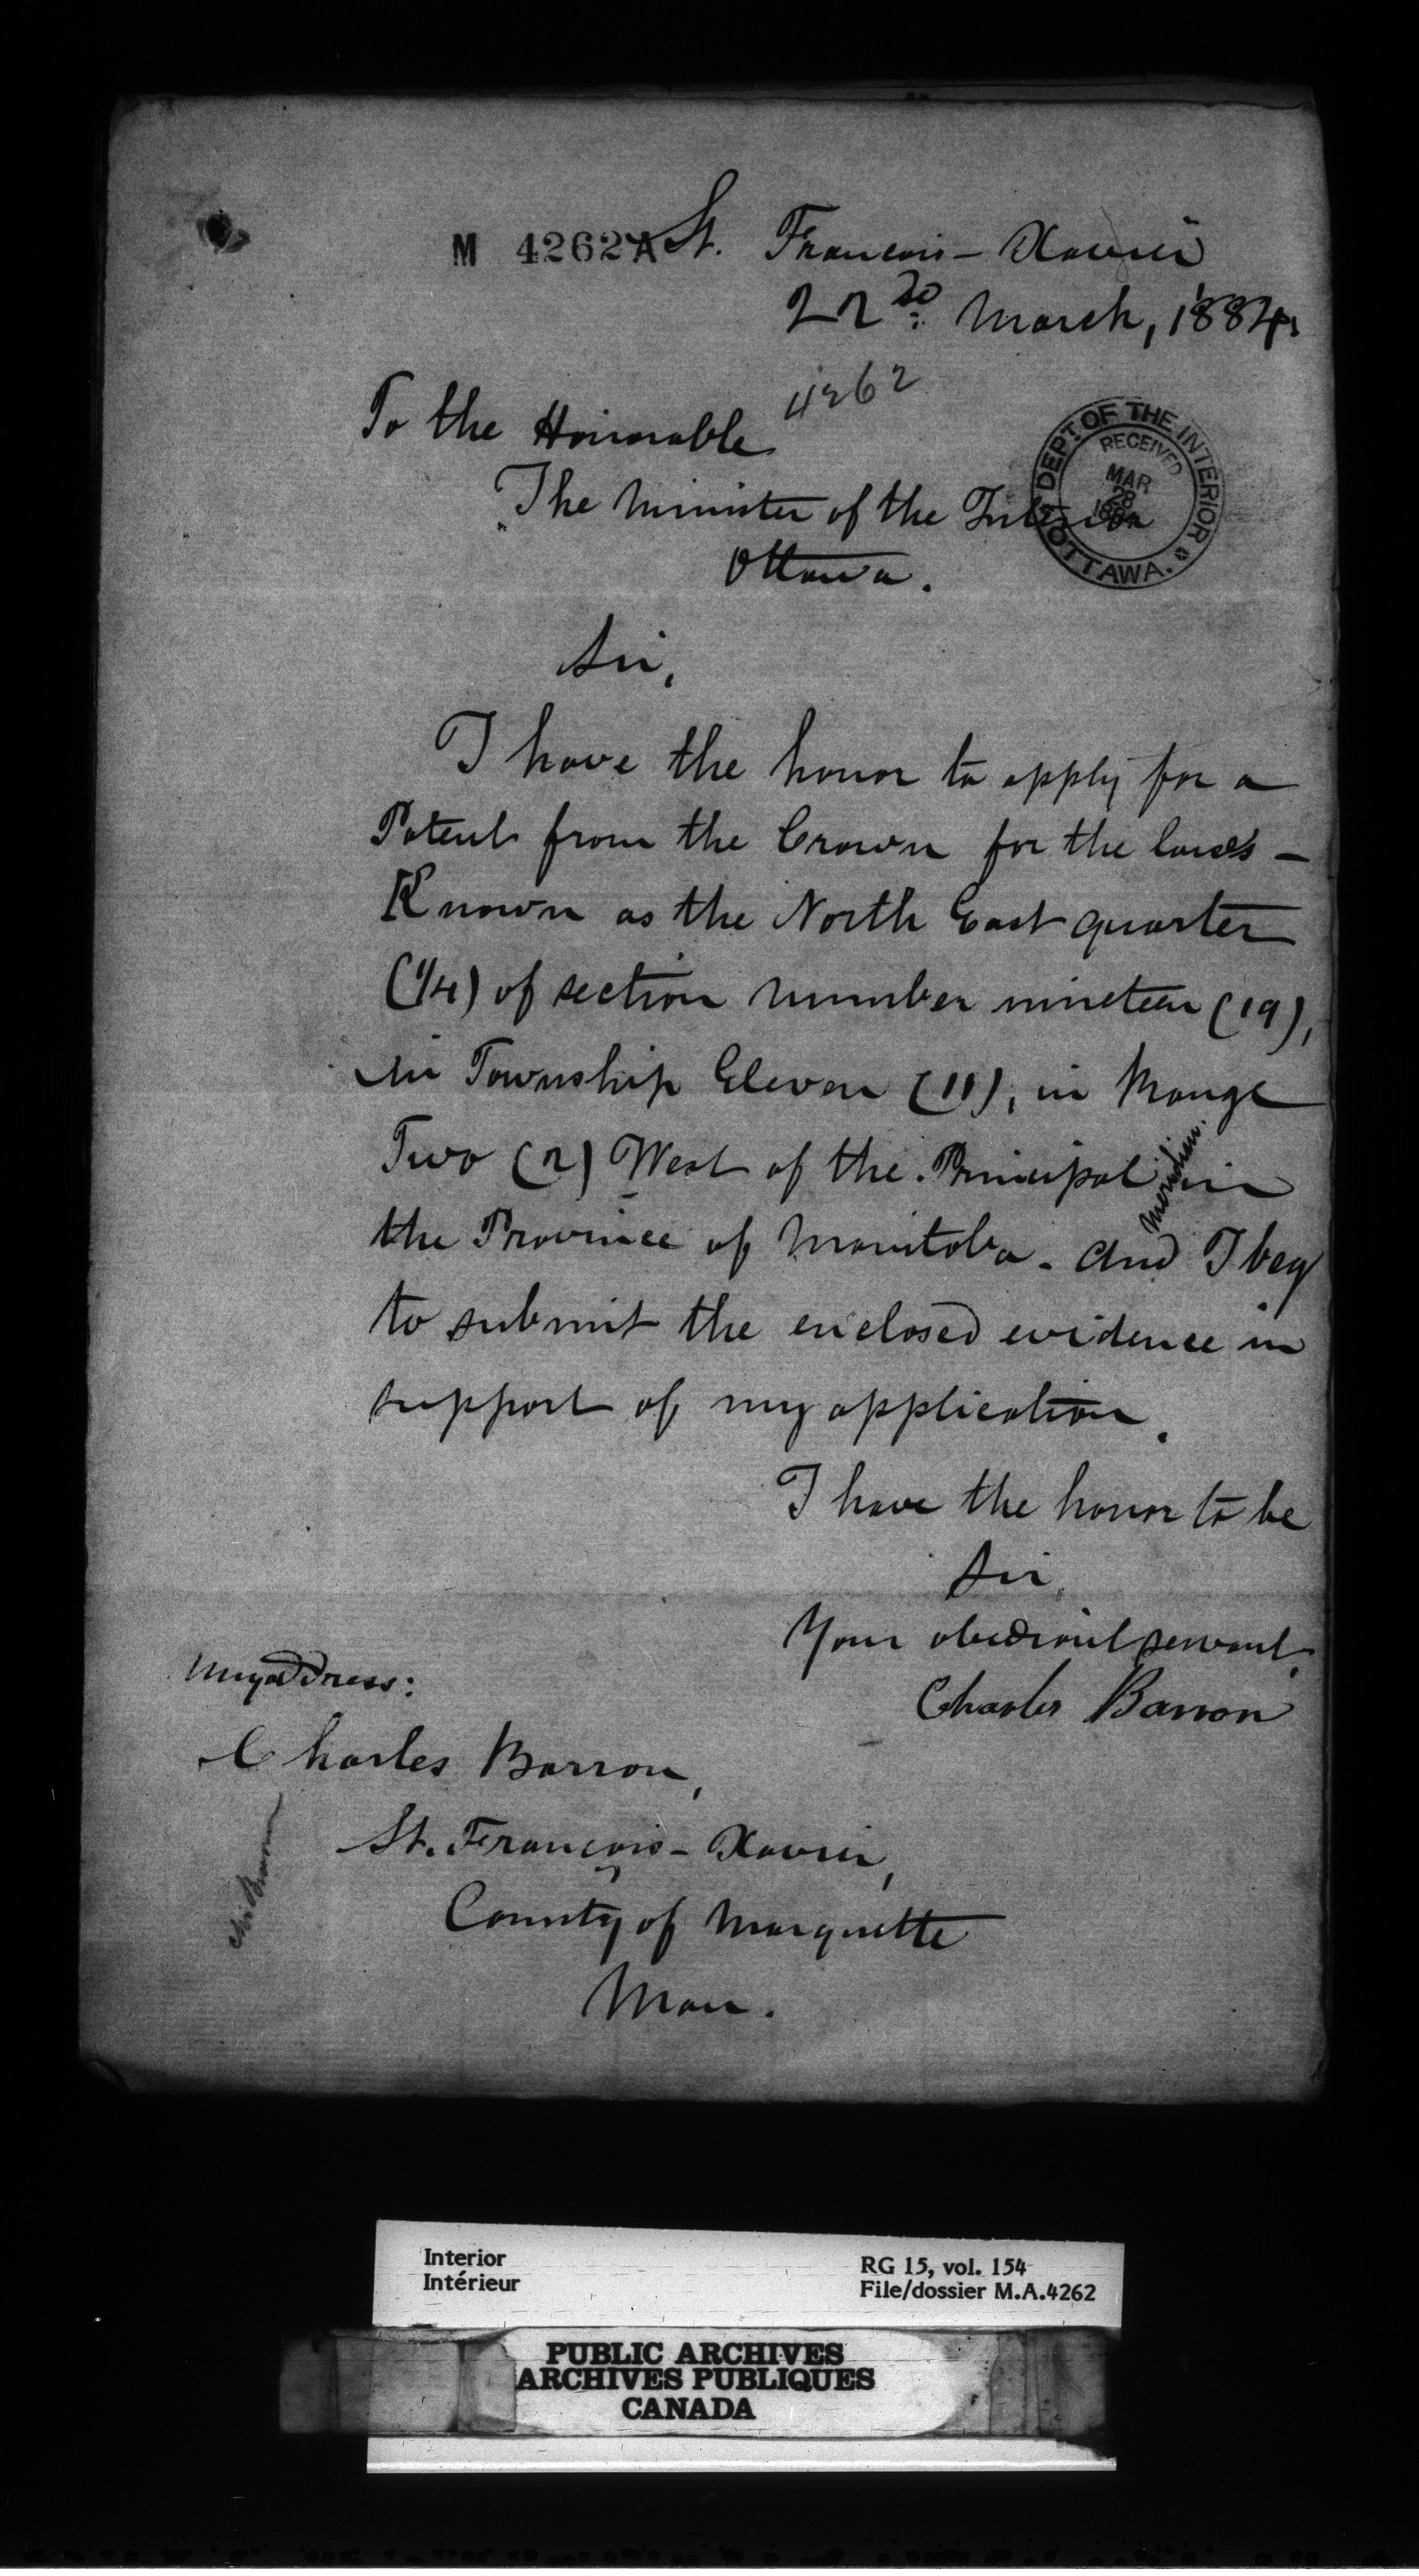 M 4262A St. Francois-Xavier
22do March, 1884.
4262
To the Honorable
The Minister of the Interior
Ottawa.
DEPT OF THE INTERIOR
RECEIVED
MAR
28
1884
OTTAWA.
Sir,
I have the honor to apply for a
Patent from the Crown for the lands -
Known as the North East quarter
(1/4) of section number nineteen (19),
in Township Eleven (11), in Range
Two (2) West of the Principal meridian. in
the Province of Manitoba. And I beg
to submit the enclosed evidence in
support of my application.
I have the honor to be
Sir,
Your obedient servant,
Charles Barron
My address:
Charles Barron,
St. François-Xavier,
County of Marquette
Man.
Chs Barron
Interior
Intérieur
RG 15, vol. 154
File/dossier M.A.4262
PUBLIC ARCHIVES
ARCHIVES PUBLIQUES
CANADA